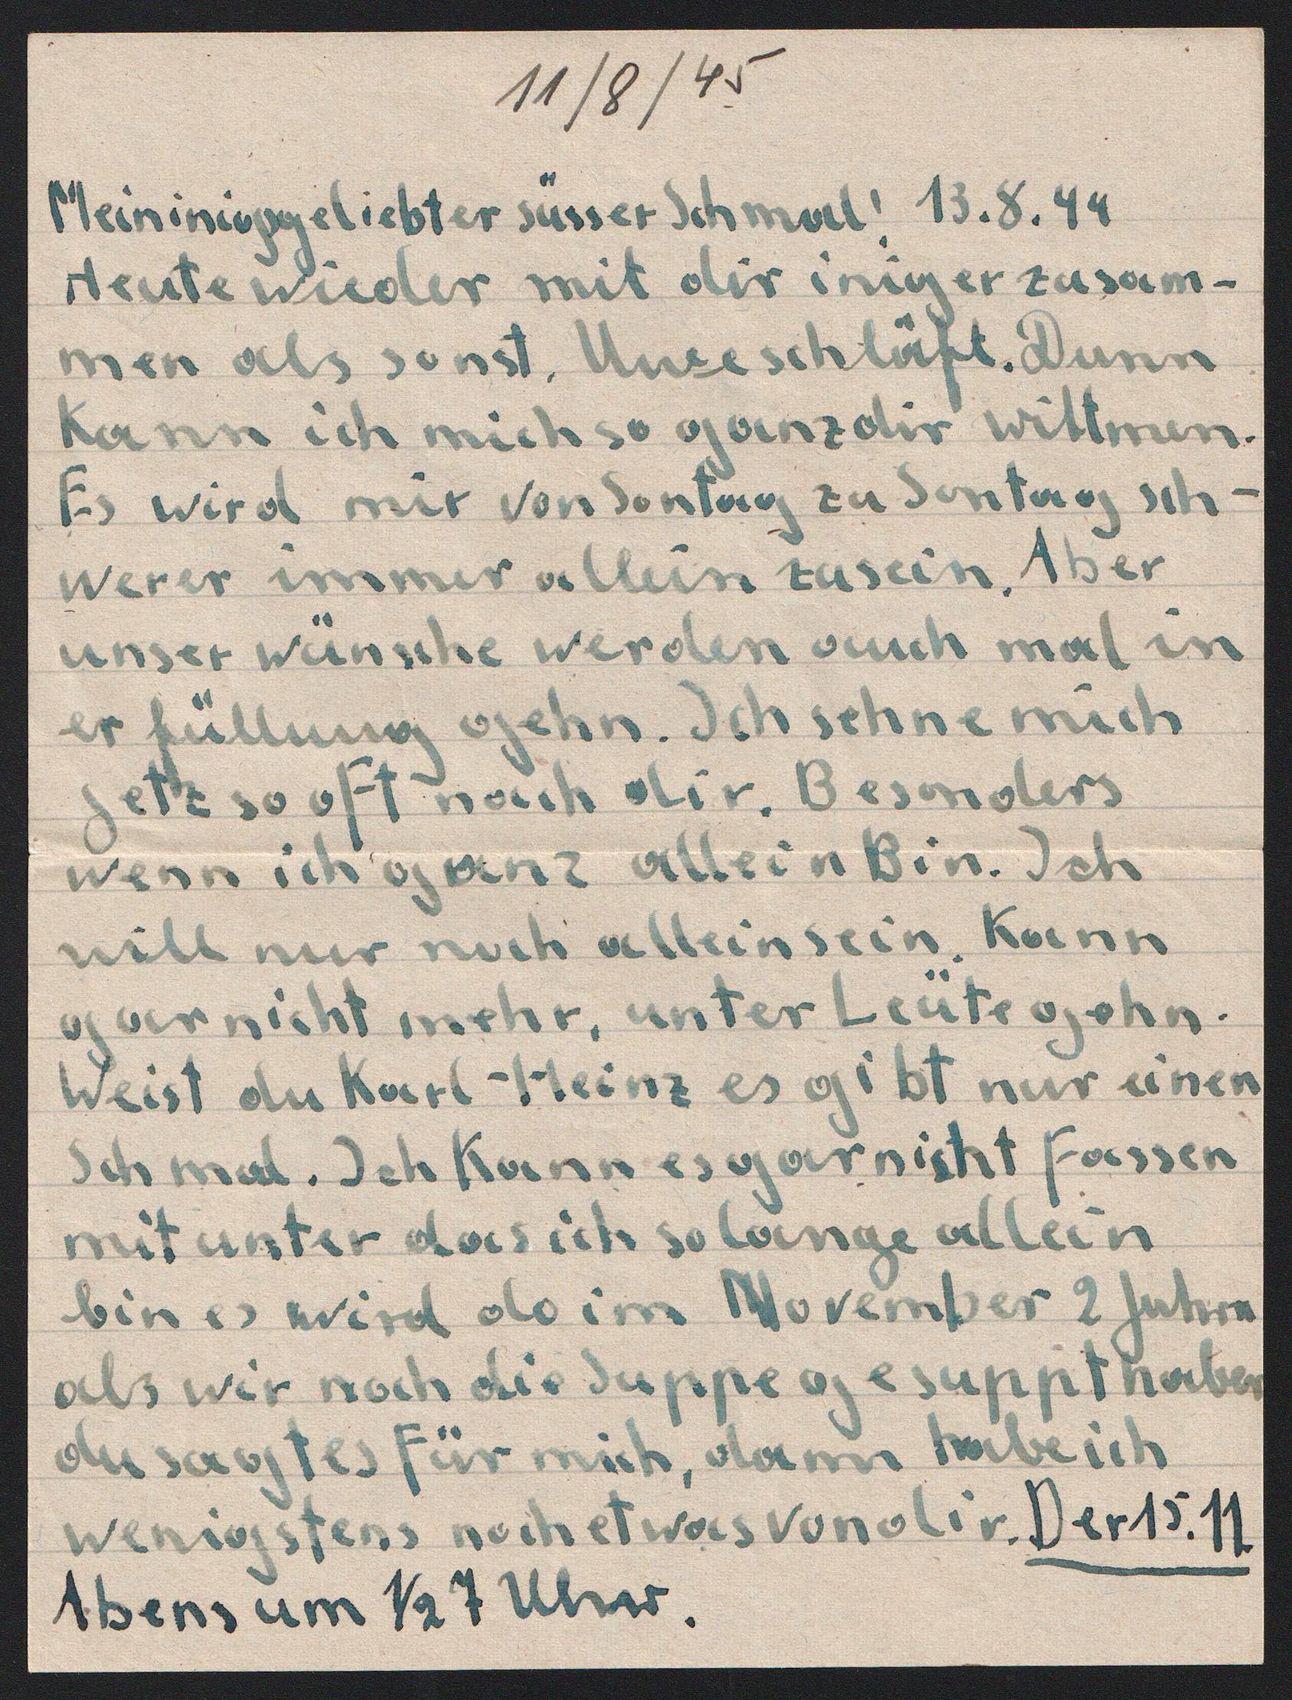 11/8/45
Mein iniggeliebter süsser Schmal! 13.8.44
Heute wieder mit dir iniger zusam-
men als sonst. Uwe schläft. Dann
Kann ich mich so ganz dir wittmen.
Es wird mir von Sontag zu Sontag sch-
werer immer allein zusein. Aber
unser wünsche werden auch mal in
er füllung gehn. Ich sehne mich
Jetz so oft nach dir. Besonders
wenn ich ganz allein Bin. Ich
will nur noch alleinsein. Kann
garnicht mehr, unter Leüte gehn.
Weist du Karl-Heinz es gibt nur einen
Schmal. Ich Kann es garnicht Fassen
mitunter das ich solange allein
bin es wird do im November 2 Jahre
als wir noch die Suppe gesuppt haben
du sagtes Für mich, dann habe ich
wenigstens noch etwas von dir. Der 15.11
Abens um 1/2 7 Uhr.